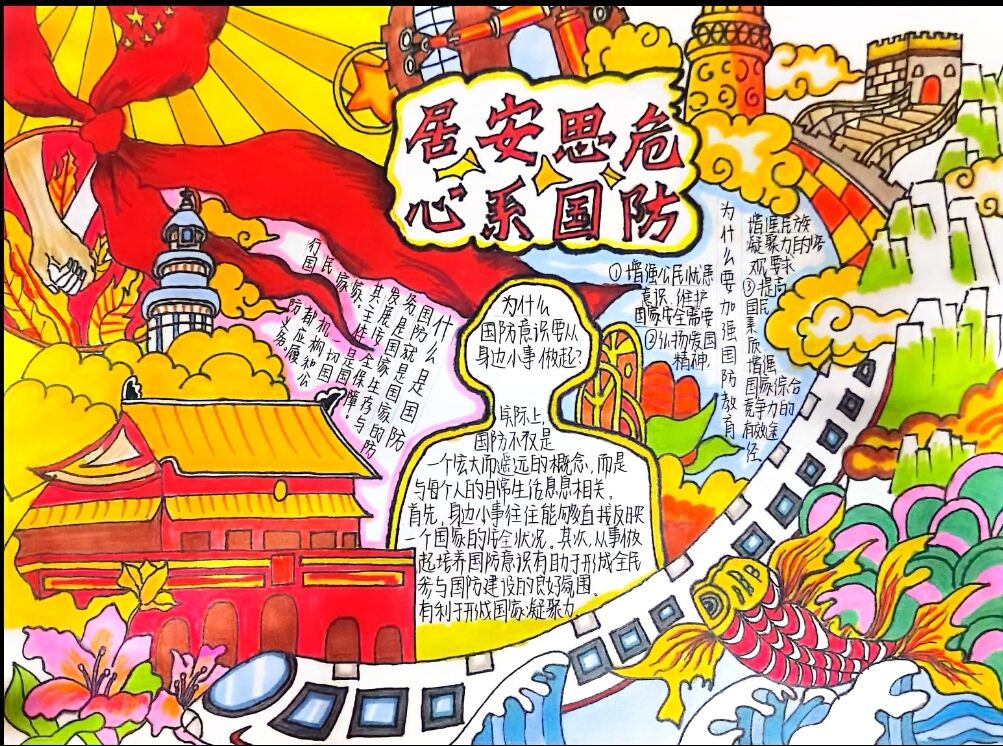 居安思危
心系国防
什么是国防
国防就是国家的防
务,是国家生存与
发展的安全保障。
为什么
国防意识要从
身边小事做起?
实际上,
国防不仅是
一个宏大而遥远的概念,而是
与每个人的日常生活息息相关。
首先,身边小事往往能够直接反映
一个国家的安全状况。其次,从事做
起培养国防意识有助于形成全民
参与国防建设的良好氛围。
有利于形成国家凝聚力
为什么要加强国防教育
①增强公民忧患
意识、维护
国家安全需要
②弘扬爱国
精神,
增进民族
凝聚力的客
观要求
③提高
国民
素
质
增强
国家综合
竞争力的
有效途
径